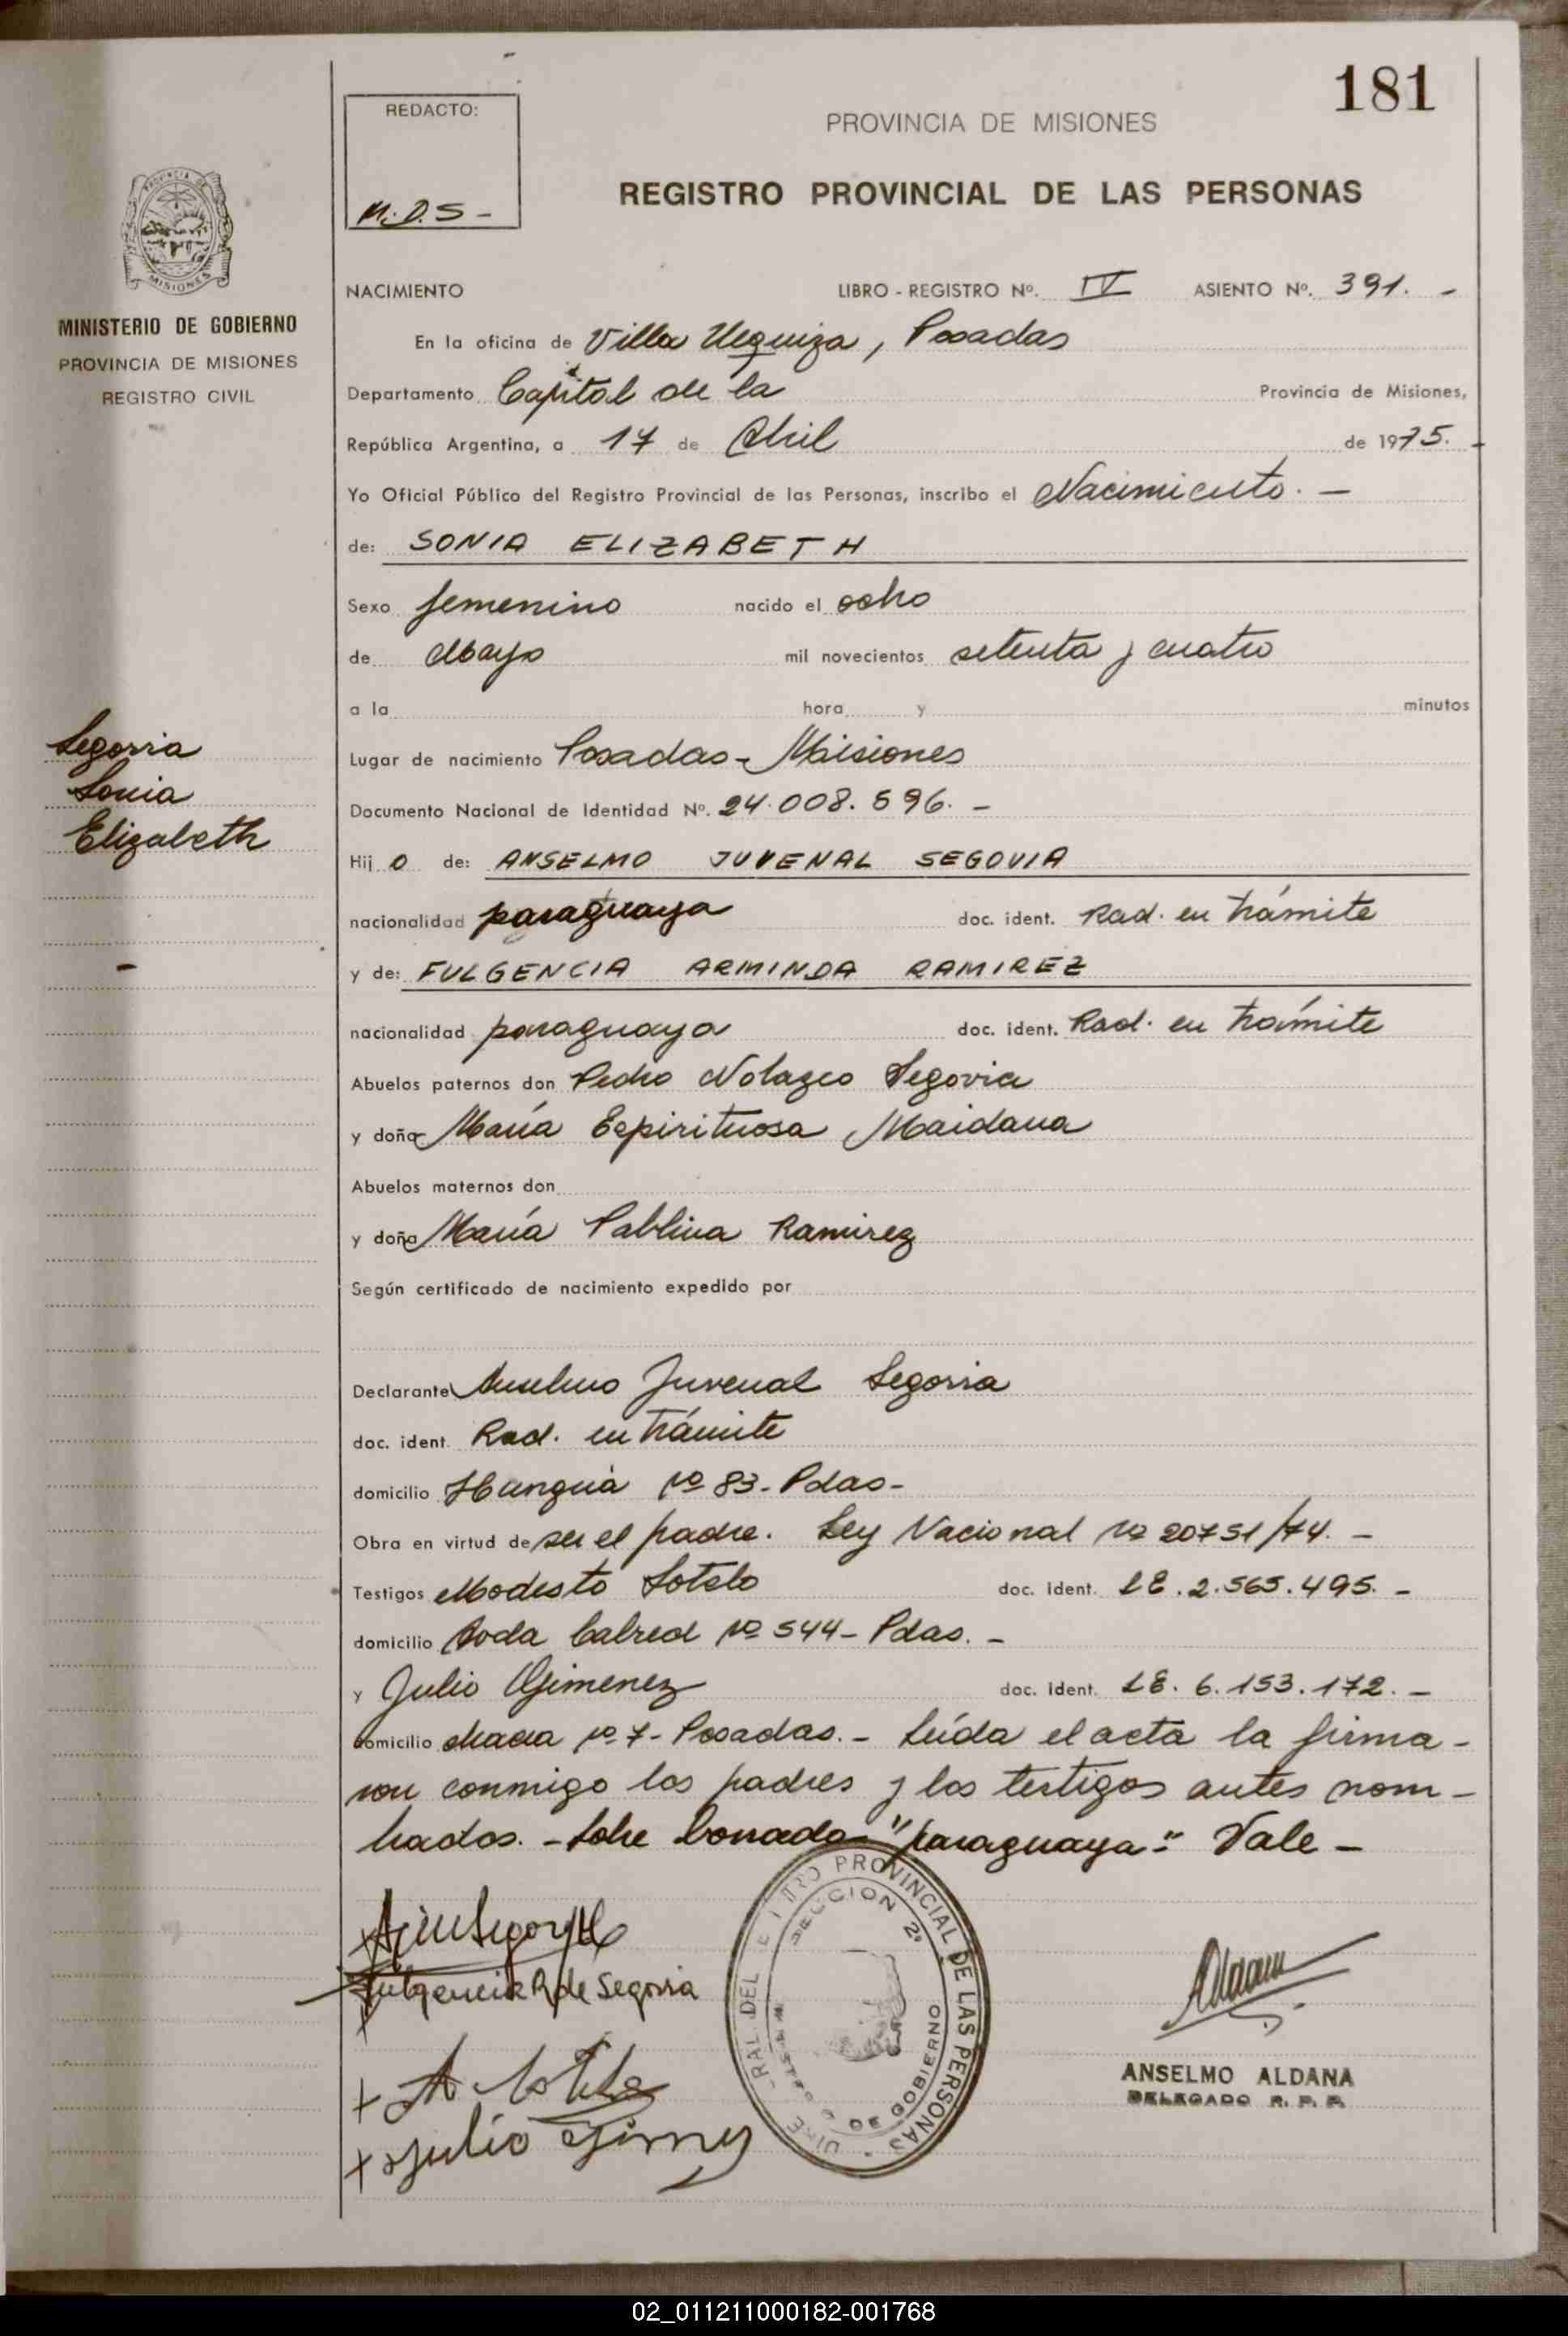 181
REDACTO:
M.D.S -
PROVINCIA DE MISIONES
REGISTRO PROVINCIAL DE LAS PERSONAS
PROVINCIA DE
MISIONES
MINISTERIO DE GOBIERNO
PROVINCIA DE MISIONES
REGISTRO CIVIL
NACIMIENTO LIBRO - REGISTRO Nº. IV ASIENTO Nº. 391. -
En la oficina de Villa Urquiza, Posadas
Departamento Capital de la Provincia de Misiones,
República Argentina, a 17 de Abril de 1975. -
Yo Oficial Público del Registro Provincial de las Personas, inscribo el Nacimiento. -
de: SONIA ELIZABETH
Sexo femenino nacido el ocho
de Mayo mil novecientos setenta y cuatro
a la hora y minutos
Segovia
Sonia
Elizabeth
-
Lugar de nacimiento Posadas - Misiones
Documento Nacional de Identidad Nº. 24.008.596. -
Hij o de: ANSELMO JUVENAL SEGOVIA
nacionalidad paraguaya doc. ident. Rad. en trámite
y de: FULGENCIA ARMINDA RAMIREZ
nacionalidad paraguaya doc. ident. Rad. en trámite
Abuelos paternos don Pedro Nolazco Segovia
y doña María Espirituosa Maidana
Abuelos maternos don
y doña María Pablina Ramirez
Según certificado de nacimiento expedido por
Declarante Anselmo Juvenal Segovia
doc. ident. Rad. en trámite
domicilio Nº 83 - Pdas -
Obra en virtud de ser el padre. Ley Nacional Nº 20751/74. -
Testigos Modesto Sotelo doc. ident. LE. 2.565.495. -
domicilio Nº 544 - Pdas. -
y Julio Gimenez doc. ident. LE. 6.153.172. -
domicilio Nº 7 - Posadas. - Leída el acta la firma -
ron conmigo los padres y los testigos antes nom -
brados. - Sobre borrado - "paraguaya": Vale -
Fulgencia R de Segovia
Julio
REGISTRO PROVINCIAL DE LAS PERSONAS
SECCION 2º
DE GOBIERNO
ANSELMO ALDANA
DELEGADO R. P. P.
02_011211000182-001768